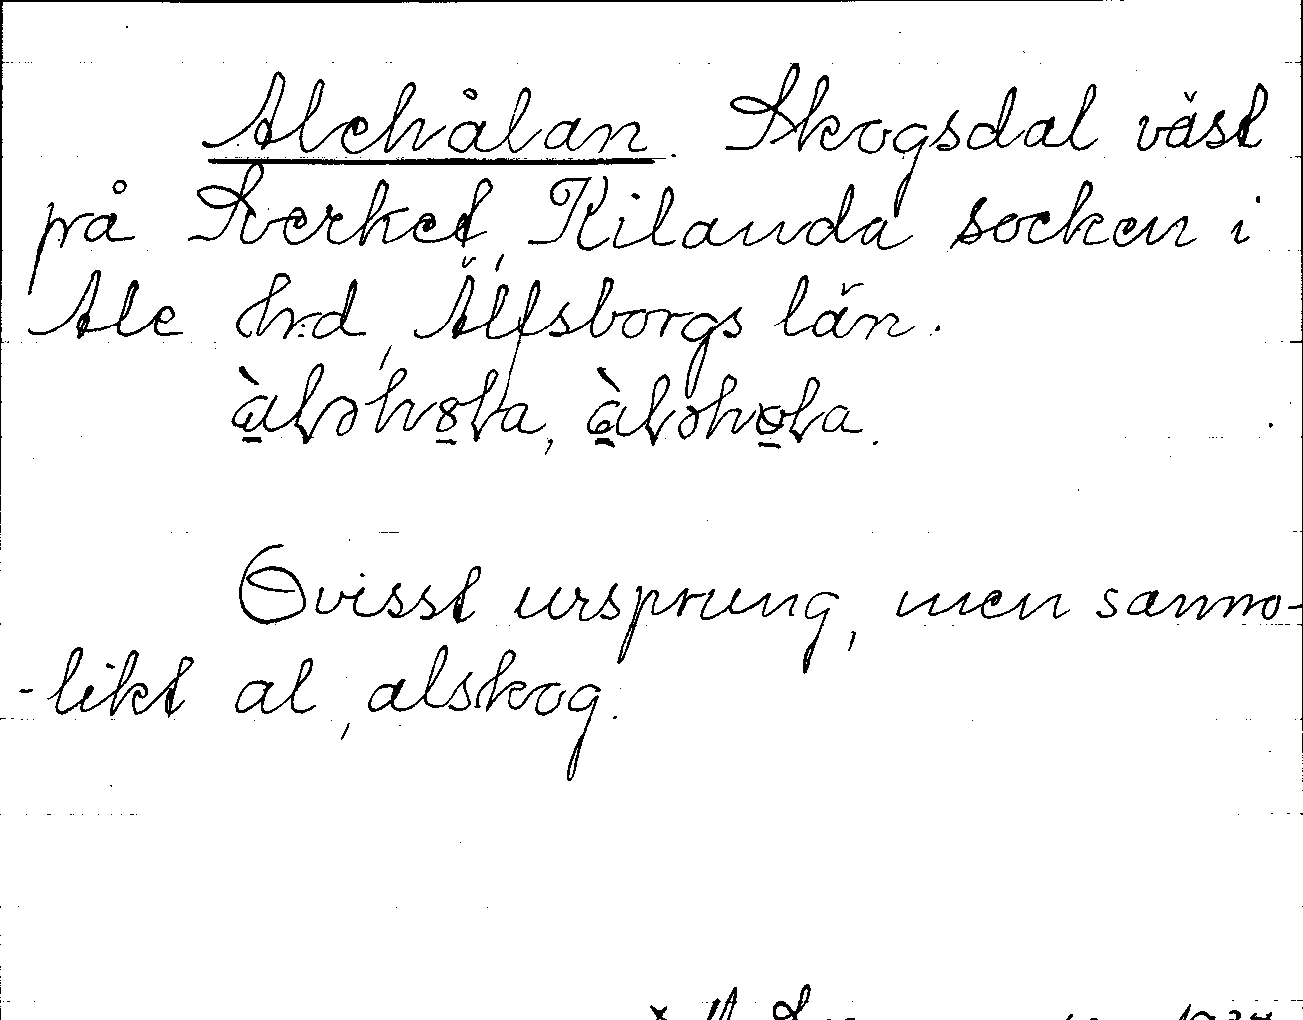 Alehålan. Skogsdal väst
på Sverket, Kilanda socken i
Ale hd, Älfsborgs län.
Ovisst ursprung, men sanno-
-likt al, alskog.